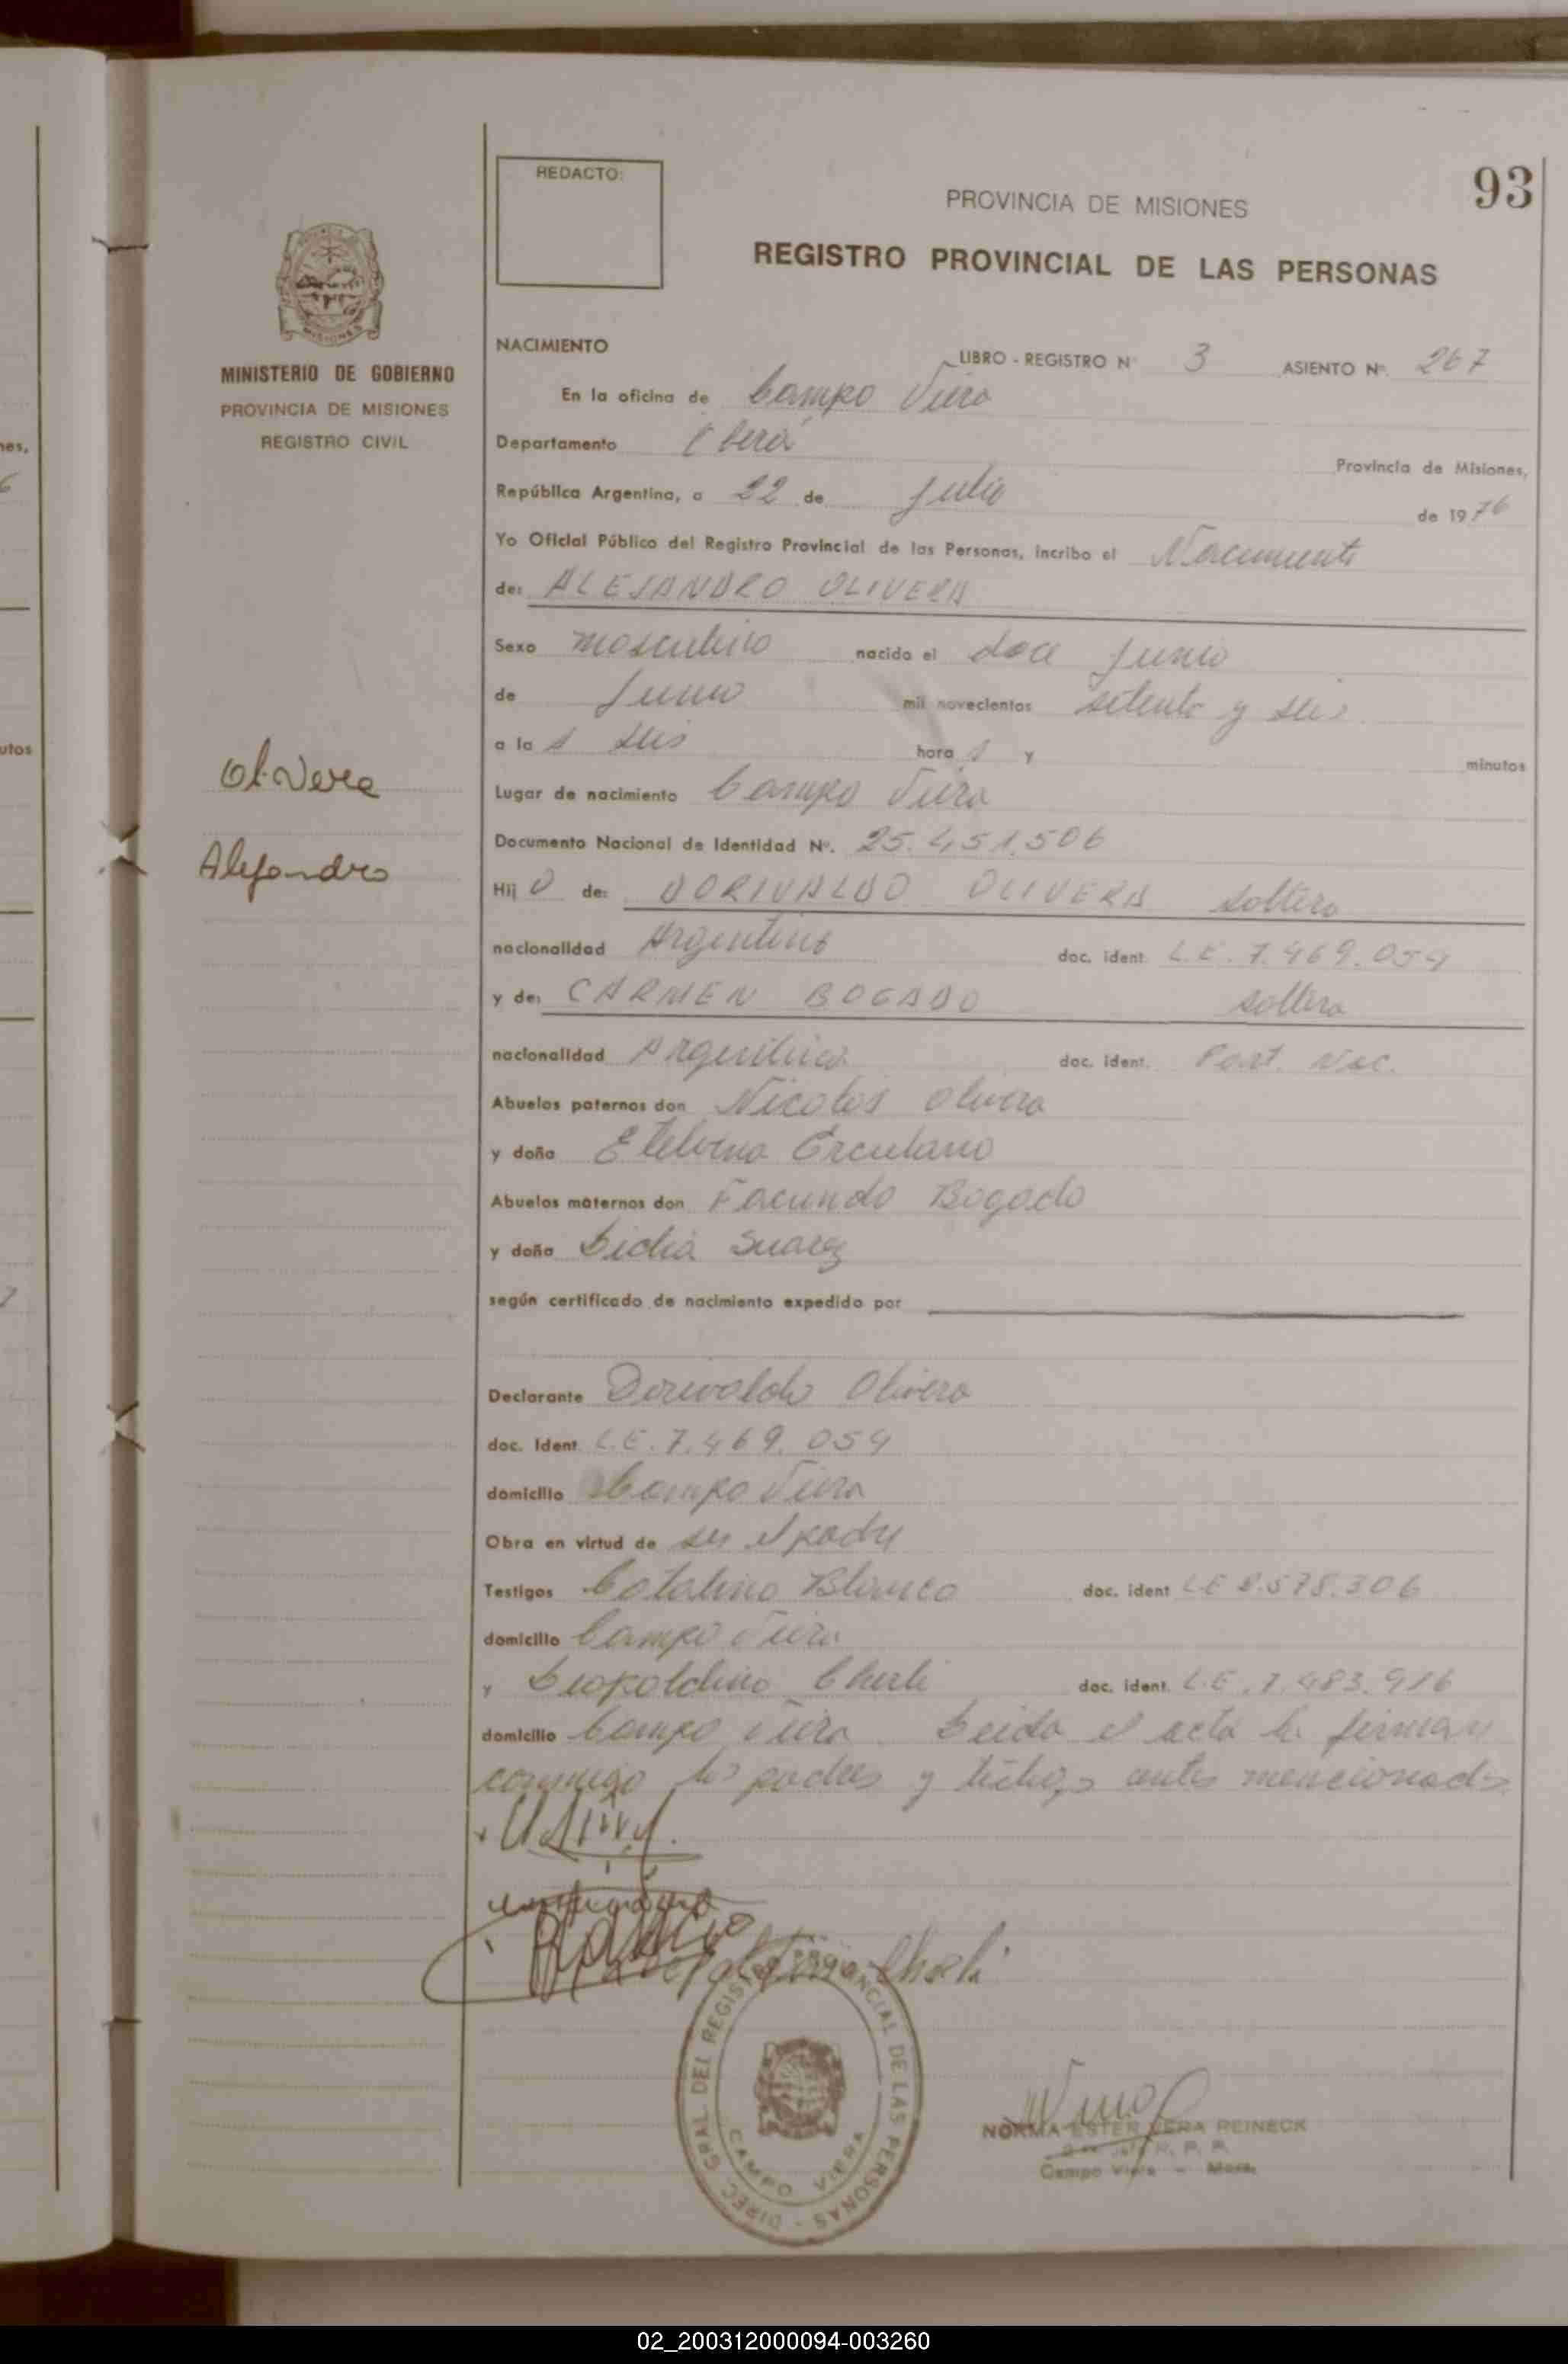 REDACTO:
93
PROVINCIA DE MISIONES
REGISTRO PROVINCIAL DE LAS PERSONAS
MISIONES
MINISTERIO DE GOBIERNO
PROVINCIA DE MISIONES
REGISTRO CIVIL
Olivera
Alejandro
NACIMIENTO
LIBRO - REGISTRO Nº 3 ASIENTO Nº. 267
En la oficina de Campo Viera
Departamento Oberá
Provincia de Misiones,
República Argentina, a 22 de Julio de 1976
Yo Oficial Público del Registro Provincial de las Personas, incribo el Nacimiento
de: ALEJANDRO OLIVERA
Sexo masculino nacido el doce Junio
de Junio mil novecientos setenta y seis
a la s seis hora s y minutos
Lugar de nacimiento Campo Viera
Documento Nacional de Identidad Nº. 25.451.506
Hij O de: DORIVALDO OLIVERA soltero
nacionalidad Argentino doc. ident. L.E. 7.469.054
y de: CARMEN BOGADO soltera
nacionalidad Argentina doc. ident. Part. Nac.
Abuelos paternos don Nicolas Olivera
y doña Etelvina Erculano
Abuelos maternos don Facundo Bogado
y doña Lidia Suarez
según certificado de nacimiento expedido por
Declarante Dorivaldo Olivera
doc. Ident L.E. 7.469.054
domicilio Campo Viera
Obra en virtud de ser el padre
Testigos Catalino Blanco doc. ident LE 8.578.306
domicilio Campo Viera
y Leopoldino Cherli doc. ident. L.E. 7.483.916
domicilio Campo Viera Leida el acta la firman
conmigo los padres y testigos antes mencionados
DIREC. GRAL. DEL REGISTRO PROVINCIAL DE LAS PERSONAS -
CAMPO VIERA
NORMA ESTER VERA REINECK
R. P. P.
Campo Viera - Mnes.
nes,
6
utos
7
02_200312000094-003260